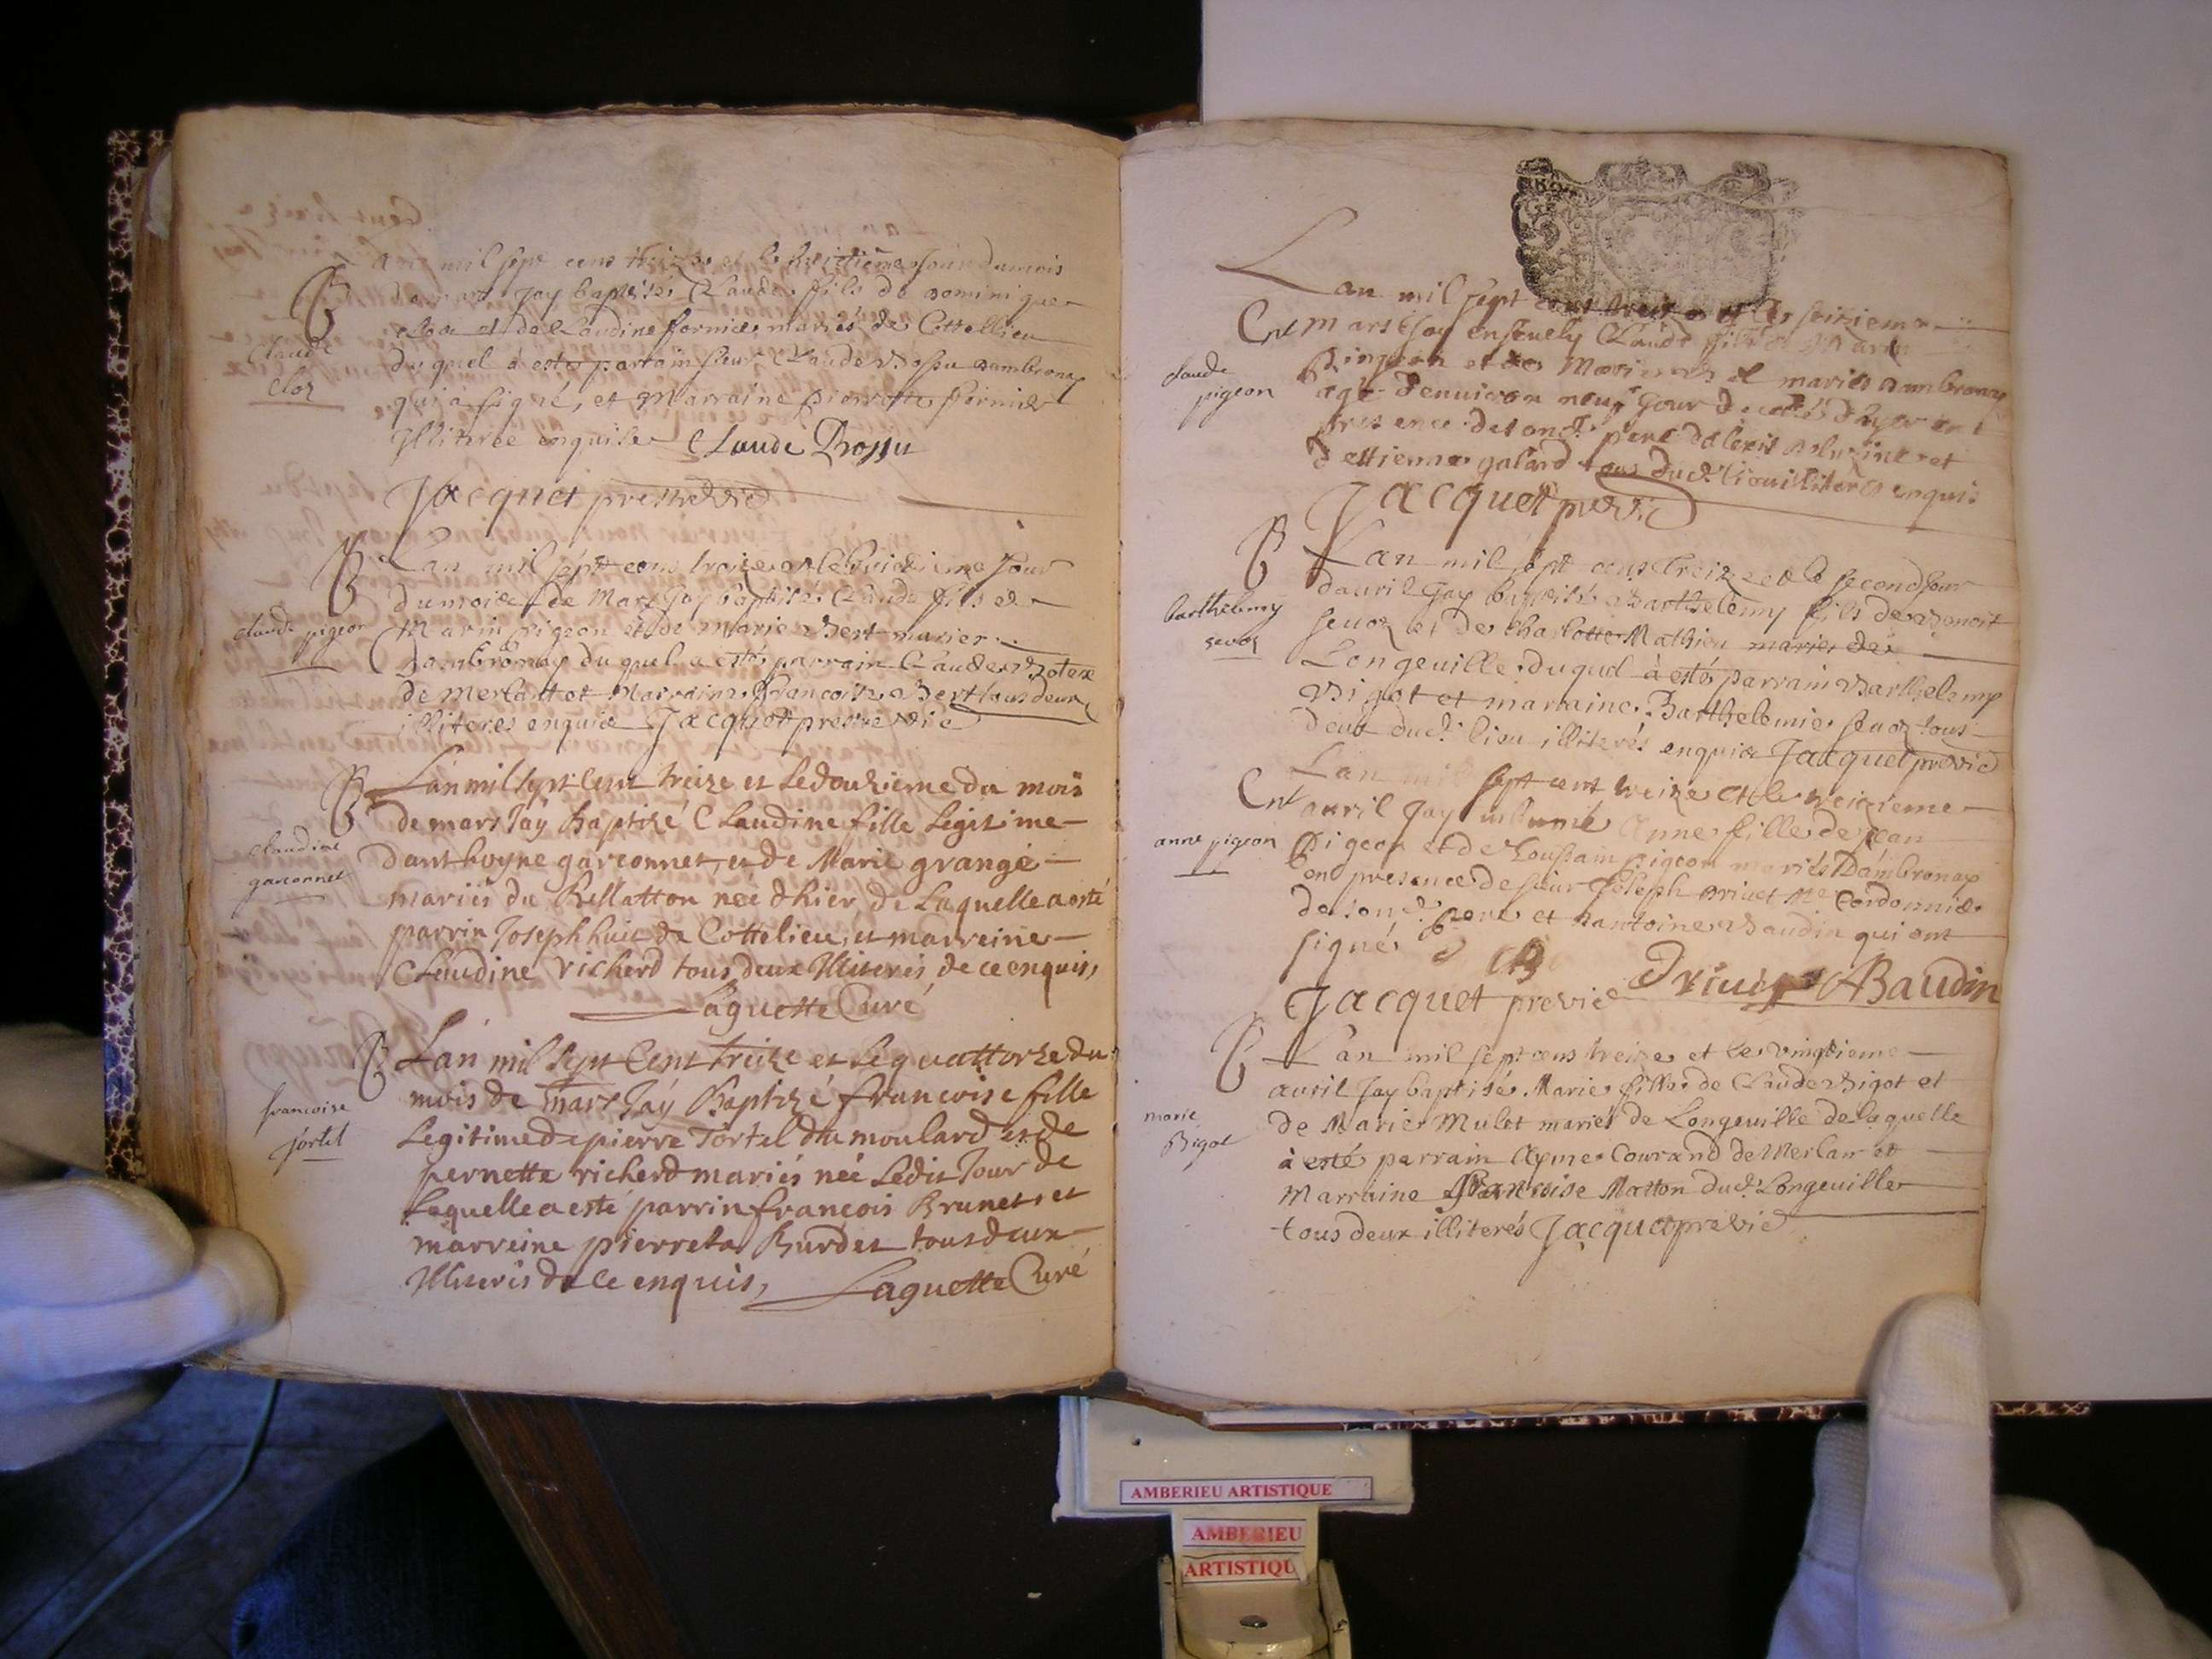 Lan mil sept cens treize et le huictieme jour du mois
B de mars jay baptisé Claude fils de dominique
claude
cloz et de Claudine fornier mariés de Cottellieu
cloz
duquel à esté parrain sieur Claude Bossu dambronay
qui a signé, et Marraine pierrette fornier
Illiterée enquise Claude Bossu
Jacquet prestre vic
B Lan mil sept cens treize et le huictieme jour
du mois de Mars jay baptisé Claude fils de
claude pigeon
Marin pigeon et de Marie Bert mariés
Dambronay duquel a esté parrain Claude
de Merlant et Marraine francoise Bert tous deux
illiteres enquis Jacquet prestre vic
B Lan mil sept Cent treize et le douzieme du mois
de mars Jay Baptizé Claudine fille Legitime
claudine
garconnet
danthoyne garconnet, et de Marie grange
mariés du Bellatton née dhier, de Laquelle a esté
parrin Joseph huit de Cottelieu, et marreine
Claudine richerd tous deux Illiterés de ce enquis,
Laguette Curé
B Lan mil Sept Cent treize et le quattorze du
mois de mars Jay Baptizé francoise fille
francoise
tortel
Legitime de pierre Tortel du moulard et de
pernette richerd mariés née Ledit Jour de
Laquelle a esté parrin francois Brunet, et
marreine pierreta Burdet tous deux
Illiterés de Ce enquis, Laguette Curé
Lan mil sept cens treize et le seizieme
Ent mars jay ensevely Claude fils de Marin
claude
pigeon
Pinjeon et de Marie mariés dambronay
agé denviron neuf jour decedé dhyer en
presence de son dt pere dalexis et
destienne galard tous dud. lieu illiterés enquis
Jacquet pre vic
B Lan mil sept cens treize et le second jour
davril Jay baptisé Barthelemy fils de Benoit
barthelemy
sevoz
sevoz et de charlotte Mathieu mariés de
Longeville duquel à esté parrain Barthelemy
Bigot et marraine Barthelemie sevoz tous
deux dud. lieu illiterés enquis Jacquet pre vic
Lan mil sept cent treize et le treizieme
Ent avril Jay inhumé Anne fille de Jean
anne pigeon
pigeon et de pigeon mariés Dambronay
en presence de sieur Joseph Brivet Me Cordonnier
de son d. pere et dantoine Baudin qui ont
signé
Jacquet pre vic Brivet ABaudin
B Lan mil sept cens treize et le vingtieme
avril Jay baptisé Marie fille de Claude Bigot et
marie
Bigot
de Marie Mulet mariés de Longeville de laquelle
à esté parrain Ayme Courand de Merlan et
Marraine francoise Matton dud. Longeville
tous deux illiterés Jacquet pre vic
AMBERIEU ARTISTIQUE
AMBERIEU
ARTISTIQU